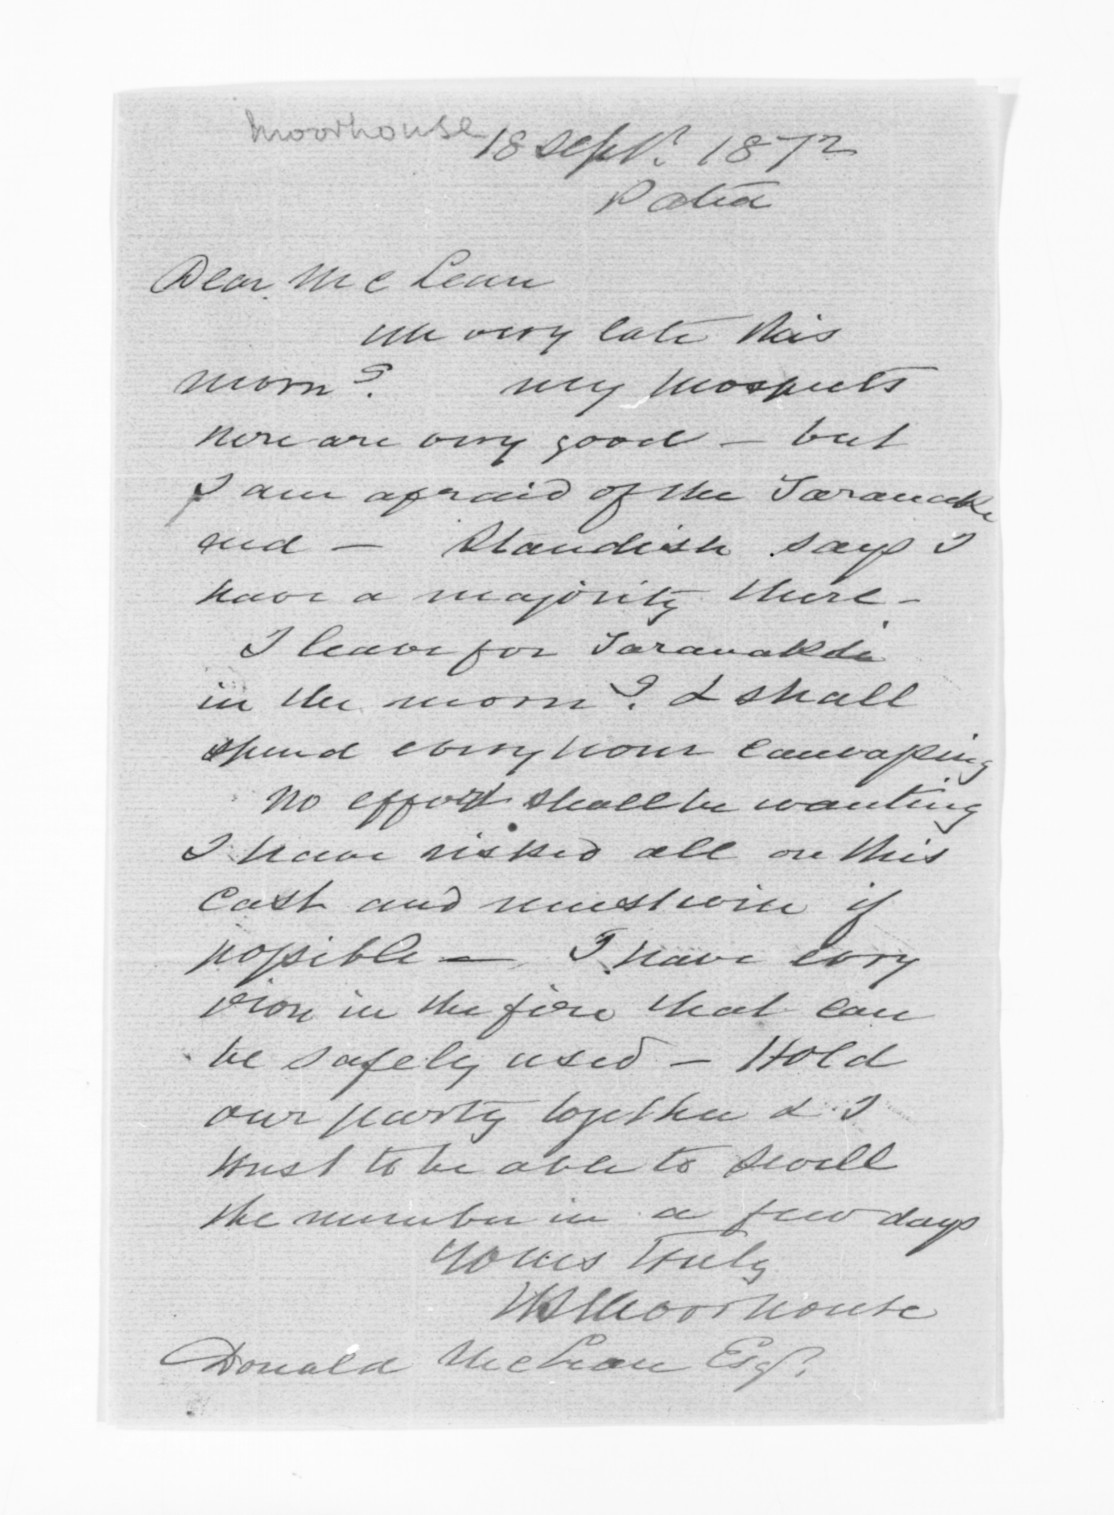 Moorhouse
18 Sept. 1872
Patea
Dear McLean
up very late this
morng. my prospects
here are very good — but
I am afraid of the Taranaki
end — Standish says I
have a majority there —
I leave for Taranaki
in the morng. & shall
spend every hour canvassing
No effort shall be wanting
I have risked all on this
cast and must win if
possible — I have every
iron in the fire that can
be safely used — Hold
our party together & I
trust to be able to swell
the number in a few days
Yours Truly
WS Moorhouse
Donald McLean Esq.